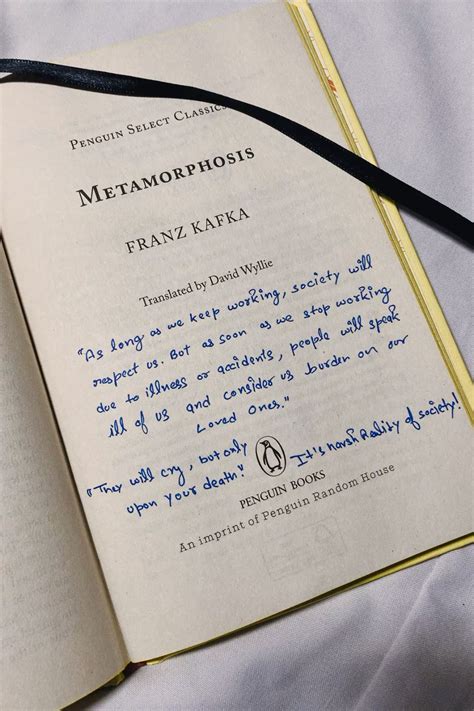 PENGUIN SELECT CLASSICS
METAMORPHOSIS
FRANZ KAFKA
Translated by David Wyllie
"As long as we keep working, society will
respect us. But as soon as we stop working
due to illness or accidents, people will speak
ill of us and consider us burden on our
Loved Ones."
"They will cry, but only
upon your death."
It's harsh Reality of society!
PENGUIN BOOKS
An imprint of Penguin Random House